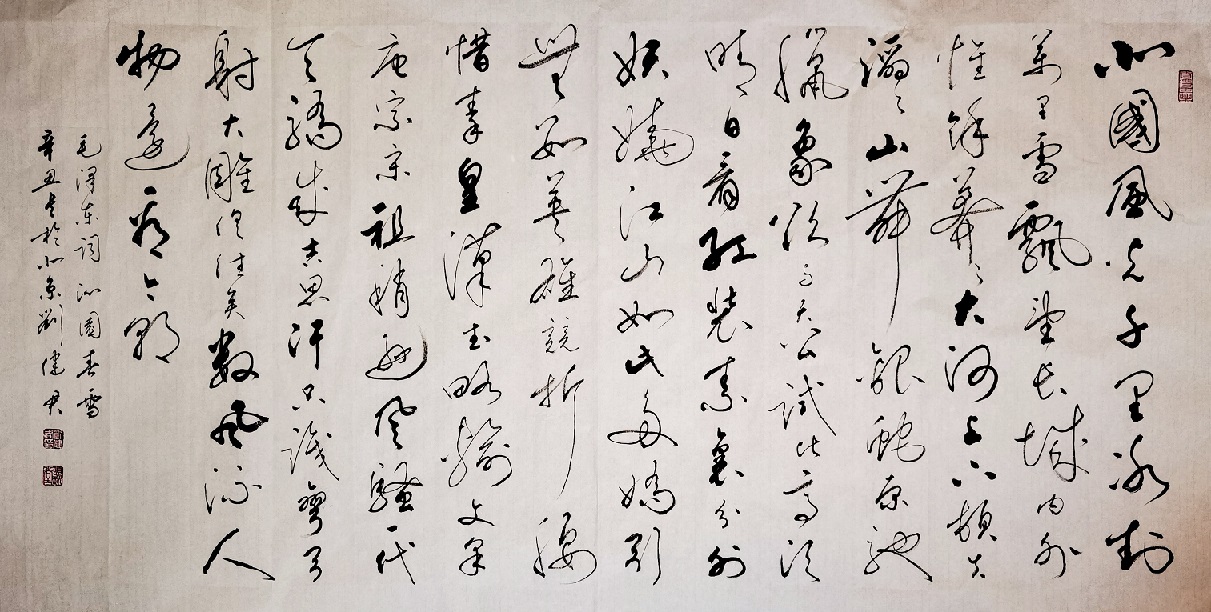 北國風光千里冰封
萬里雪飄望長城内外
惟餘莽々大河上下頓失
滔々山舞銀蛇原馳
臘象欲与天公試比高须
晴日看红装素裹分外
妖嬈江山如此多嬌引
無數英雄競折腰
惜秦皇漢武略輸文采
唐宗宋祖稍遜風騷一代
天驕成吉思汗只識彎弓
射大雕俱往矣數風流人
物還看今朝
毛澤東詞沁園春雪
辛丑冬於北京劉健君